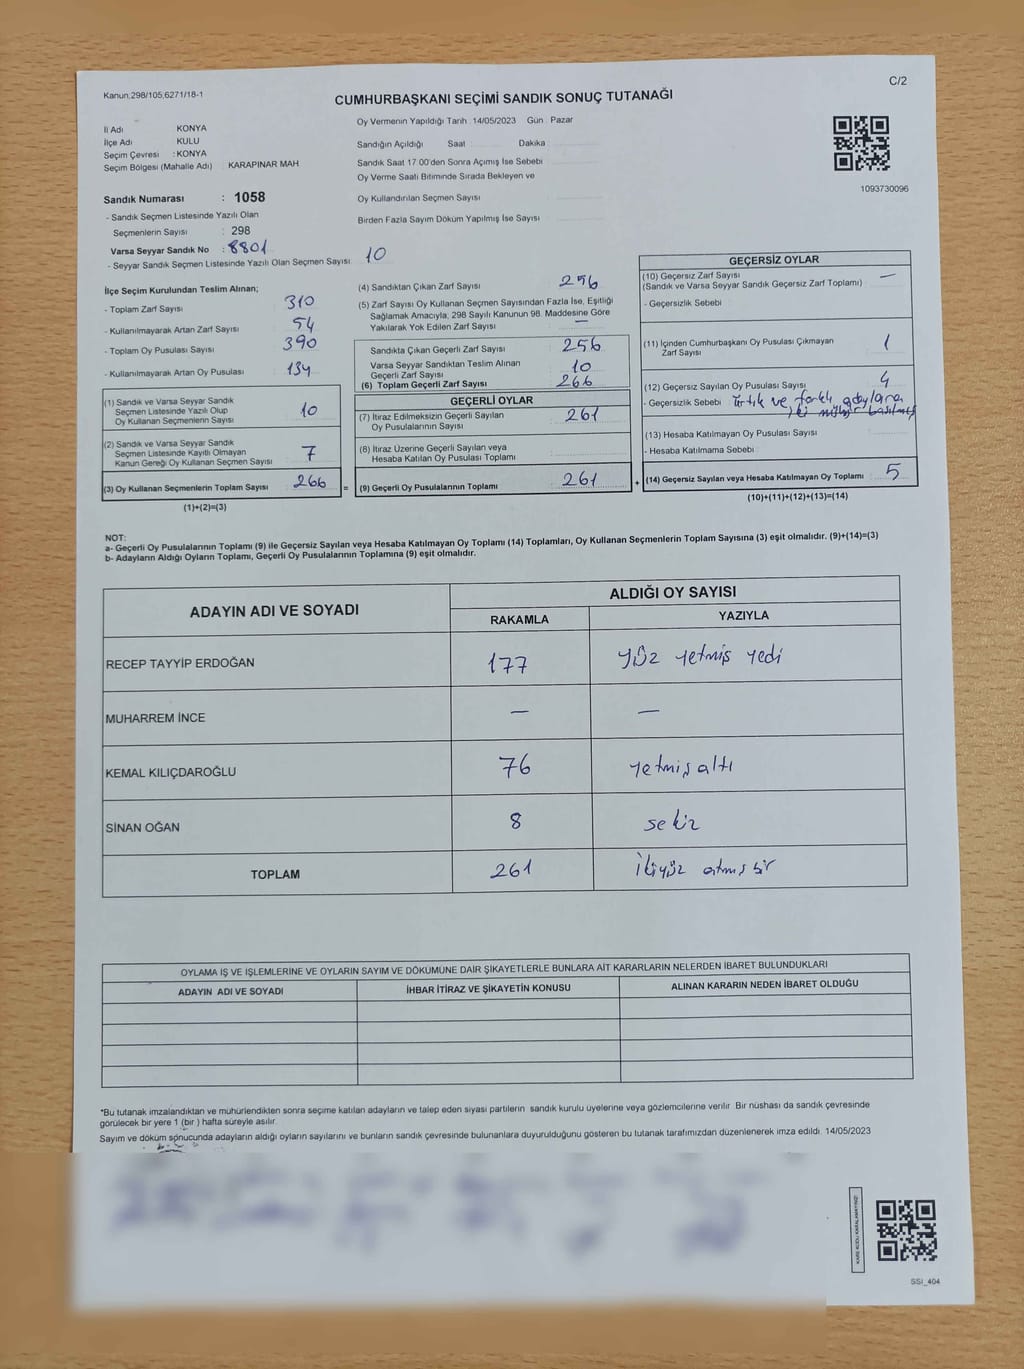 Kanun:298/105,6271/18-1
C/2
CUMHURBAŞKANI SEÇİMİ SANDIK SONUÇ TUTANAĞI
İl Adı KONYA
İlçe Adı KULU
Seçim Çevresi : KONYA
Seçim Bölgesi (Mahalle Adı) KARAPINAR MAH
Oy Vermenin Yapıldığı Tarih : 14/05/2023 Gün : Pazar
Sandığın Açıldığı Saat Dakika
Sandık Saat 17:00'den Sonra Açımış İse Sebebi
Oy Verme Saati Bitiminde Sırada Bekleyen ve
Oy Kullandırılan Seçmen Sayısı
Birden Fazla Sayım Döküm Yapılmış İse Sayısı
1093730096
Sandık Numarası : 1058
- Sandık Seçmen Listesinde Yazılı Olan
Seçmenlerin Sayısı : 298
Varsa Seyyar Sandık No : 8801
- Seyyar Sandık Seçmen Listesinde Yazılı Olan Seçmen Sayısı 10
İlçe Seçim Kurulundan Teslim Alınan;
- Toplam Zarf Sayısı 310
- Kullanılmayarak Artan Zarf Sayısı 54
- Toplam Oy Pusulası Sayısı 390
- Kullanılmayarak Artan Oy Pusulası 134
(1) Sandık ve Varsa Seyyar Sandık
Seçmen Listesinde Yazılı Olup
Oy Kullanan Seçmenlerin Sayısı 10
(2) Sandık ve Varsa Seyyar Sandık
Seçmen Listesinde Kayıtlı Olmayan
Kanun Gereği Oy Kullanan Seçmen Sayısı 7
(3) Oy Kullanan Seçmenlerin Toplam Sayısı 266
(1)+(2)=(3)
=
(4) Sandıktan Çıkan Zarf Sayısı 256
(5) Zarf Sayısı Oy Kullanan Seçmen Sayısından Fazla İse, Eşitliği
Sağlamak Amacıyla, 298 Sayılı Kanunun 98. Maddesine Göre
Yakılarak Yok Edilen Zarf Sayısı —
Sandıkta Çıkan Geçerli Zarf Sayısı 256
Varsa Seyyar Sandıktan Teslim Alınan
Geçerli Zarf Sayısı 10
(6) Toplam Geçerli Zarf Sayısı 266
GEÇERLİ OYLAR
(7) İtiraz Edilmeksizin Geçerli Sayılan
Oy Pusulalarının Sayısı 261
(8) İtiraz Üzerine Geçerli Sayılan veya
Hesaba Katılan Oy Pusulası Toplamı
(9) Geçerli Oy Pusulalarının Toplamı 261
+
GEÇERSİZ OYLAR
(10) Geçersiz Zarf Sayısı —
(Sandık ve Varsa Seyyar Sandık Geçersiz Zarf Toplamı)
- Geçersizlik Sebebi
(11) İçinden Cumhurbaşkanı Oy Pusulası Çıkmayan
Zarf Sayısı 1
(12) Geçersiz Sayılan Oy Pusulası Sayısı 4
- Geçersizlik Sebebi Yırtık ve farklı adaylara
iki mühür basılmış
(13) Hesaba Katılmayan Oy Pusulası Sayısı
- Hesaba Katılmama Sebebi
(14) Geçersiz Sayılan veya Hesaba Katılmayan Oy Toplamı 5
(10)+(11)+(12)+(13)=(14)
NOT:
a- Geçerli Oy Pusulalarının Toplamı (9) ile Geçersiz Sayılan veya Hesaba Katılmayan Oy Toplamı (14) Toplamları, Oy Kullanan Seçmenlerin Toplam Sayısına (3) eşit olmalıdır. (9)+(14)=(3)
b- Adayların Aldığı Oyların Toplamı, Geçerli Oy Pusulalarının Toplamına (9) eşit olmalıdır.
ADAYIN ADI VE SOYADI ALDIĞI OY SAYISI
RAKAMLA YAZIYLA
RECEP TAYYİP ERDOĞAN 177 yüz yetmiş yedi
MUHARREM İNCE — —
KEMAL KILIÇDAROĞLU 76 yetmiş altı
SİNAN OĞAN 8 sekiz
TOPLAM 261 ikiyüz atmış bir
OYLAMA İŞ VE İŞLEMLERİNE VE OYLARIN SAYIM VE DÖKÜMÜNE DAİR ŞİKAYETLERLE BUNLARA AİT KARARLARIN NELERDEN İBARET BULUNDUKLARI
ADAYIN ADI VE SOYADI İHBAR İTİRAZ VE ŞİKAYETİN KONUSU ALINAN KARARIN NEDEN İBARET OLDUĞU
*Bu tutanak imzalandıktan ve mühürlendikten sonra seçime katılan adayların ve talep eden siyasi partilerin sandık kurulu üyelerine veya gözlemcilerine verilir. Bir nüshası da sandık çevresinde
görülecek bir yere 1 (bir ) hafta süreyle asılır.
Sayım ve döküm sonucunda adayların aldığı oyların sayılarını ve bunların sandık çevresinde bulunanlara duyurulduğunu gösteren bu tutanak tarafımızdan düzenlenerek imza edildi. 14/05/2023
KARE KODU KARALAMAYINIZ!
SSI_404